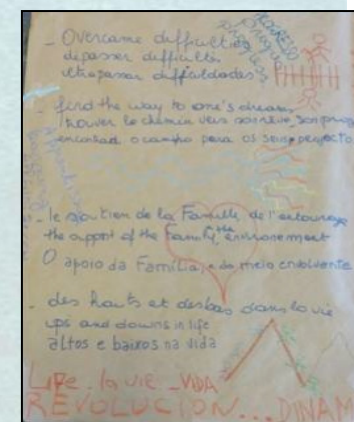 PROGRESO
progrès
progress
- Overcame difficulties
dépasser difficultés
ultrapassar difficuldades
- find the way to one's dream
trouver le chemin vers son rêve, son
o campo para os seus projecto
- le soutien de la Famille, de l'entourage
the support of the Family, the environement
O apoio da Familia, e do meio envolvente
- des hauts et des bas dans la vie
ups and downs in life
altos e baixos na vida
LIFE - la vie - VIDA
REVOLUCION... DINAM